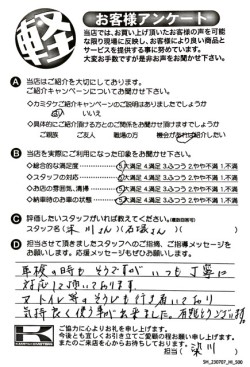 軽
お客様アンケート
当店では、お買い上げ頂いたお客様の声を可能
な限り現場に反映し、お客様により良い商品と
サービスを提供する事に努めています。
大変お手数ですが是非お声をお聞かせ下さい。
A 当店はご紹介を大切にしております。
ご紹介キャンペーンについてお聞かせ下さい。
◇カミタケご紹介キャンペーンのご説明はありましたでしょうか
はい いいえ
◇具体的にご紹介頂ける方とのご関係をお聞かせ頂けますでしょうか
ご親族 ご友人 職場の方 機会があれば紹介したい
B 当店を実際にご利用になった印象をお聞かせ下さい。
◇総合的な満足度 5.大満足 4.満足 3.ふつう 2.やや不満 1.不満
◇スタッフの対応 5.大満足 4.満足 3.ふつう 2.やや不満 1.不満
◇お店の雰囲気、清掃 5.大満足 4.満足 3.ふつう 2.やや不満 1.不満
◇納車時のお車の状態 5.大満足 4.満足 3.ふつう 2.やや不満 1.不満
C 評価したいスタッフがいれば教えてください。(複数回答可)
スタッフ名( 川さん)( さん)
D 担当させて頂きましたスタッフへのご指摘、ご指導メッセージを
お願いします。応援メッセージもぜひお願いします。
車検の時もそうですが いつも丁寧に
対応して頂いております。
トイレ等のそうじも行き届いており
気持良く使う事が出来ました。
ご協力に心よりお礼を申し上げます。
今後とも宜しくお引き立てご愛顧の程お願い申し上げます。
またのご来店を心からお待ちしております。
担当( 川 )
SH_230707_HI_500